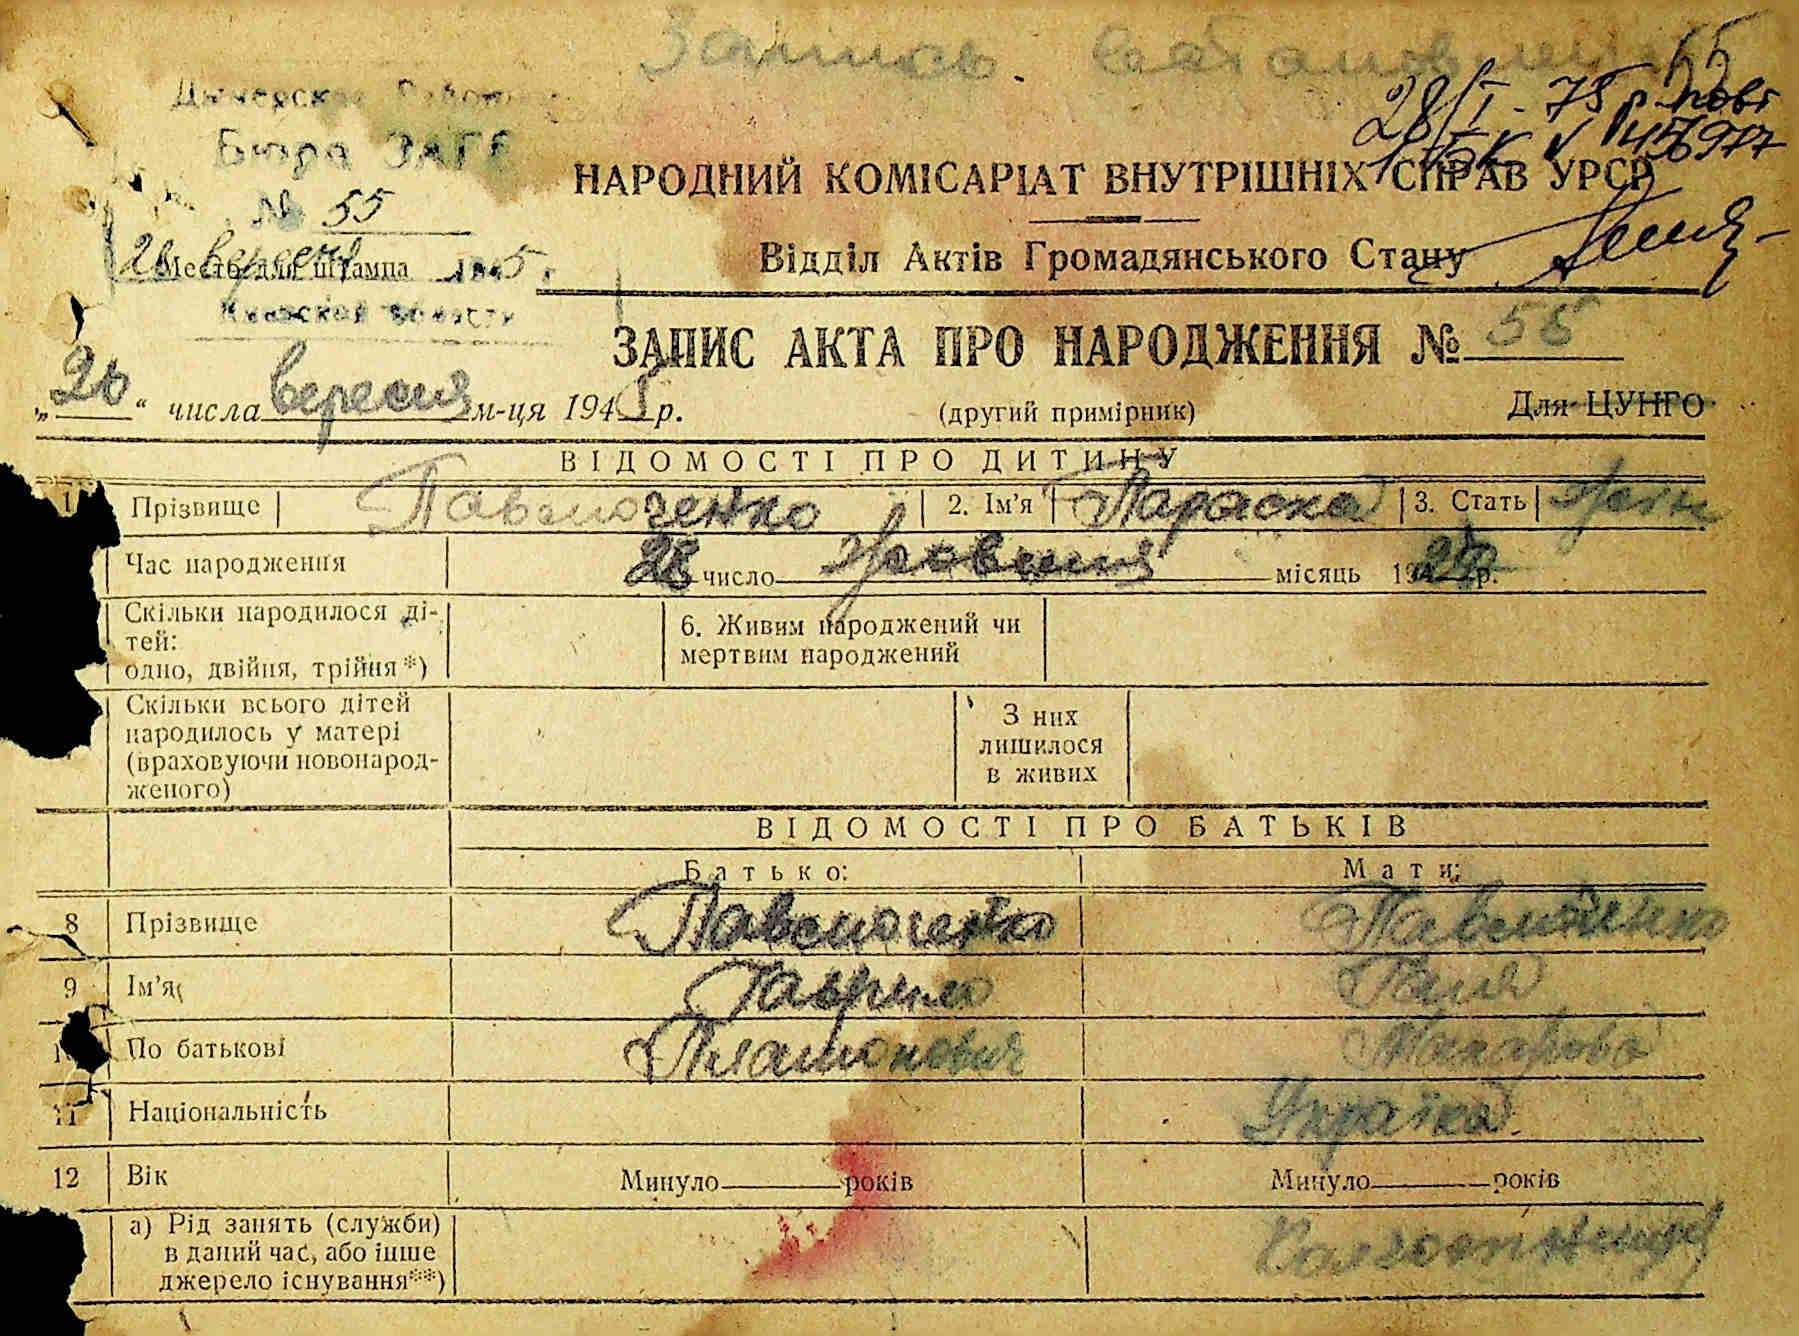 Запись восстановлена 55
28/I-75 р. повт
Бюро ЗАГС
№ 55
26 вересня 1945
Место для штампа
Киевской области
НАРОДНИЙ КОМІСАРІАТ ВНУТРІШНІХ СПРАВ УРСР
Відділ Актів Громадянського Стану
ЗАПИС АКТА ПРО НАРОДЖЕННЯ № 55
„26“ числа вересня м-ця 1945 р. (другий примірник) Для ЦУНГО
ВІДОМОСТІ ПРО ДИТИНУ
1 Прізвище Павлюченко 2. Ім'я Параска 3. Стать жін
Час народження 28 число жовтня місяць 19 р.
Скільки народилося ді-
тей:
одно, двійня, трійня*)
6. Живим народжений чи
мертвим народжений
Скільки всього дітей
народилось у матері
(враховуючи новонарод-
женого)
З них
лишилося
в живих
ВІДОМОСТІ ПРО БАТЬКІВ
Батько: Мати:
8 Прізвище Павлюченко Павлюченко
9 Ім'я Гаврило Галя
10 По батькові Платонович Макарова
11 Національність Українка
12 Вік Минуло років Минуло років
а) Рід занять (служби)
в даний час, або інше
джерело існування**)
Колгоспниця